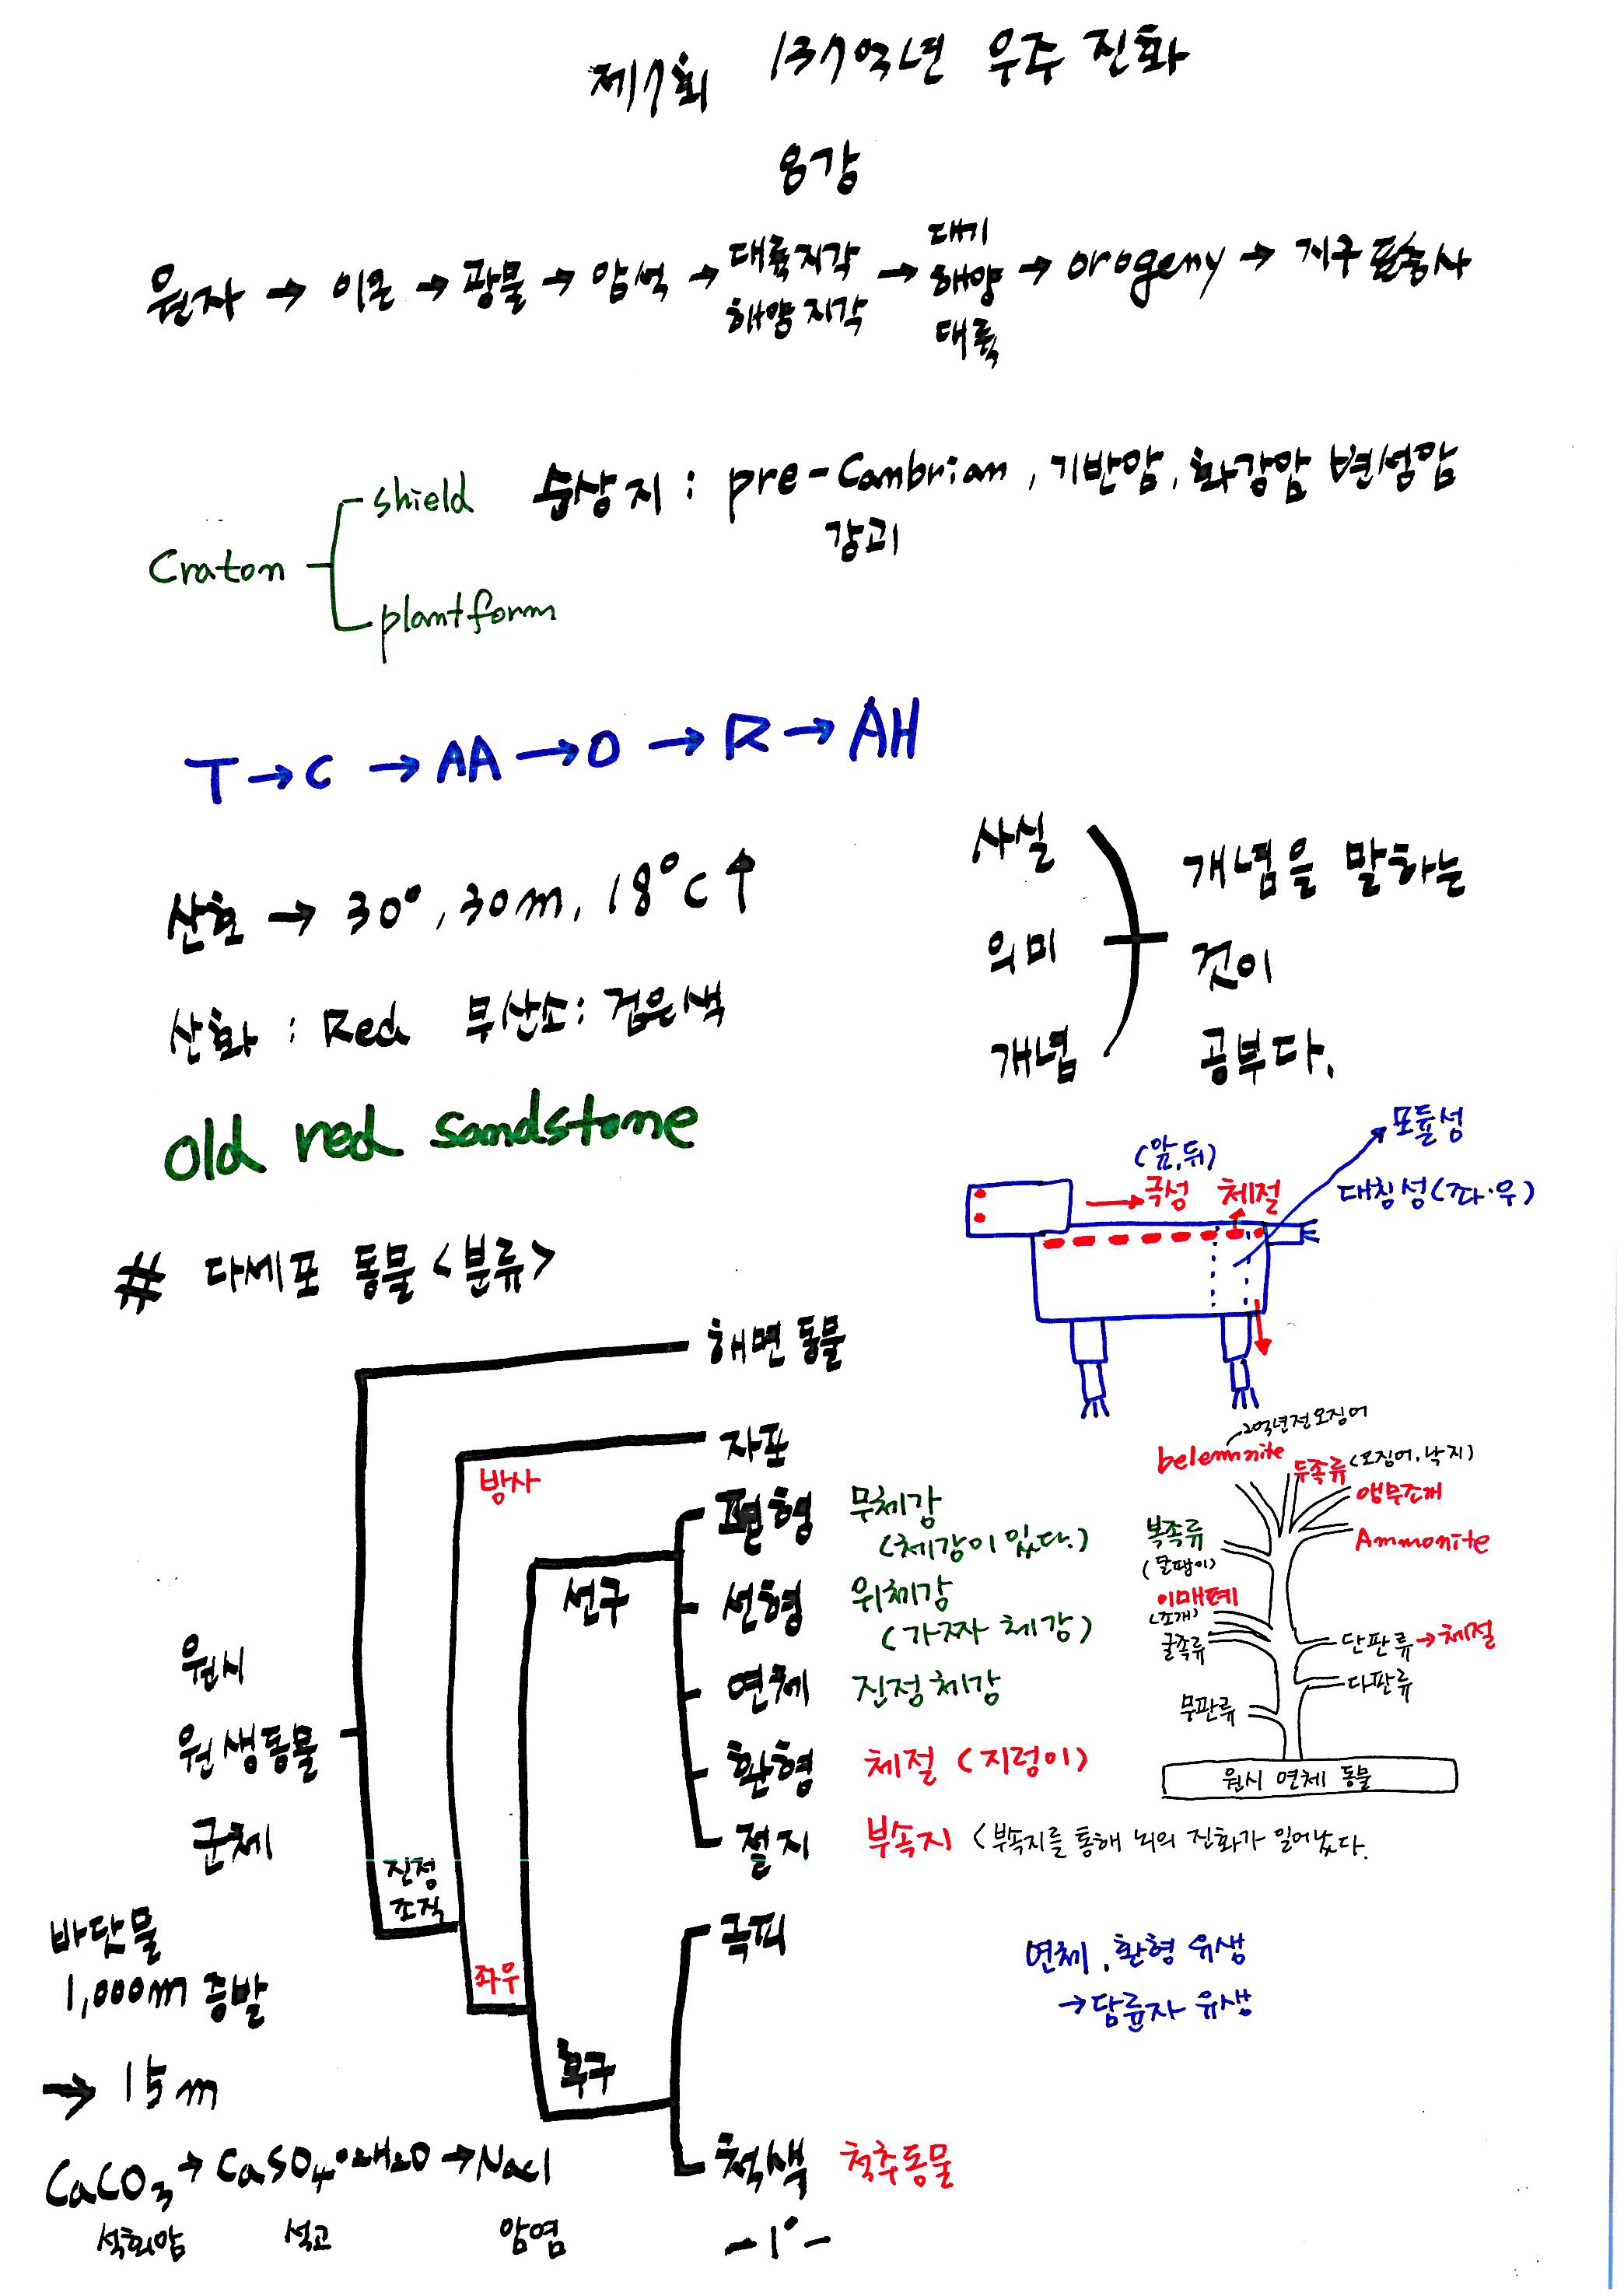 제7회 137억년 우주 진화
8강
원자 → 이온 → 광물 → 암석 → 대륙지각 해양지각 → 대기 해양 대륙 → orogeny → 지구 표층사
Craton
shield
plantform
순상지 : pre-Cambrian, 기반암, 화강암 변성암
강괴
T → C → AA → O → R → AH
산호 → 30°, 30m, 18°C↑
산화 : Red 무산소 : 검은색
old red sandstone
사실
의미
개념
개념을 말하는
것이
공부다.
모듈성
(앞,뒤)
극성
체절
대칭성(좌·우)
# 다세포 동물<분류>
해면동물
자포
방사
편형 무체강
(체강이 있다.)
선형 위체강
(가짜 체강)
연체 진정체강
환형 체절 (지렁이)
절지 부속지 <부속지를 통해 뇌의 진화가 일어났다.
선구
원시
원생동물
군체
진정
조직
좌우
극피
후구
척색 척추동물
2억년전 오징어
belemnite
두족류 (오징어, 낙지)
앵무조개
Ammonite
복족류
(달팽이)
이매패
(조개)
굴족류
단판류 → 체절
다판류
무판류
원시 연체 동물
연체, 환형 유생
→ 담륜자 유생
바닷물
1,000m 증발
→ 15m
CaCO3 → CaSO4·2H2O → NaCl
석회암 석고 암염
-1°-